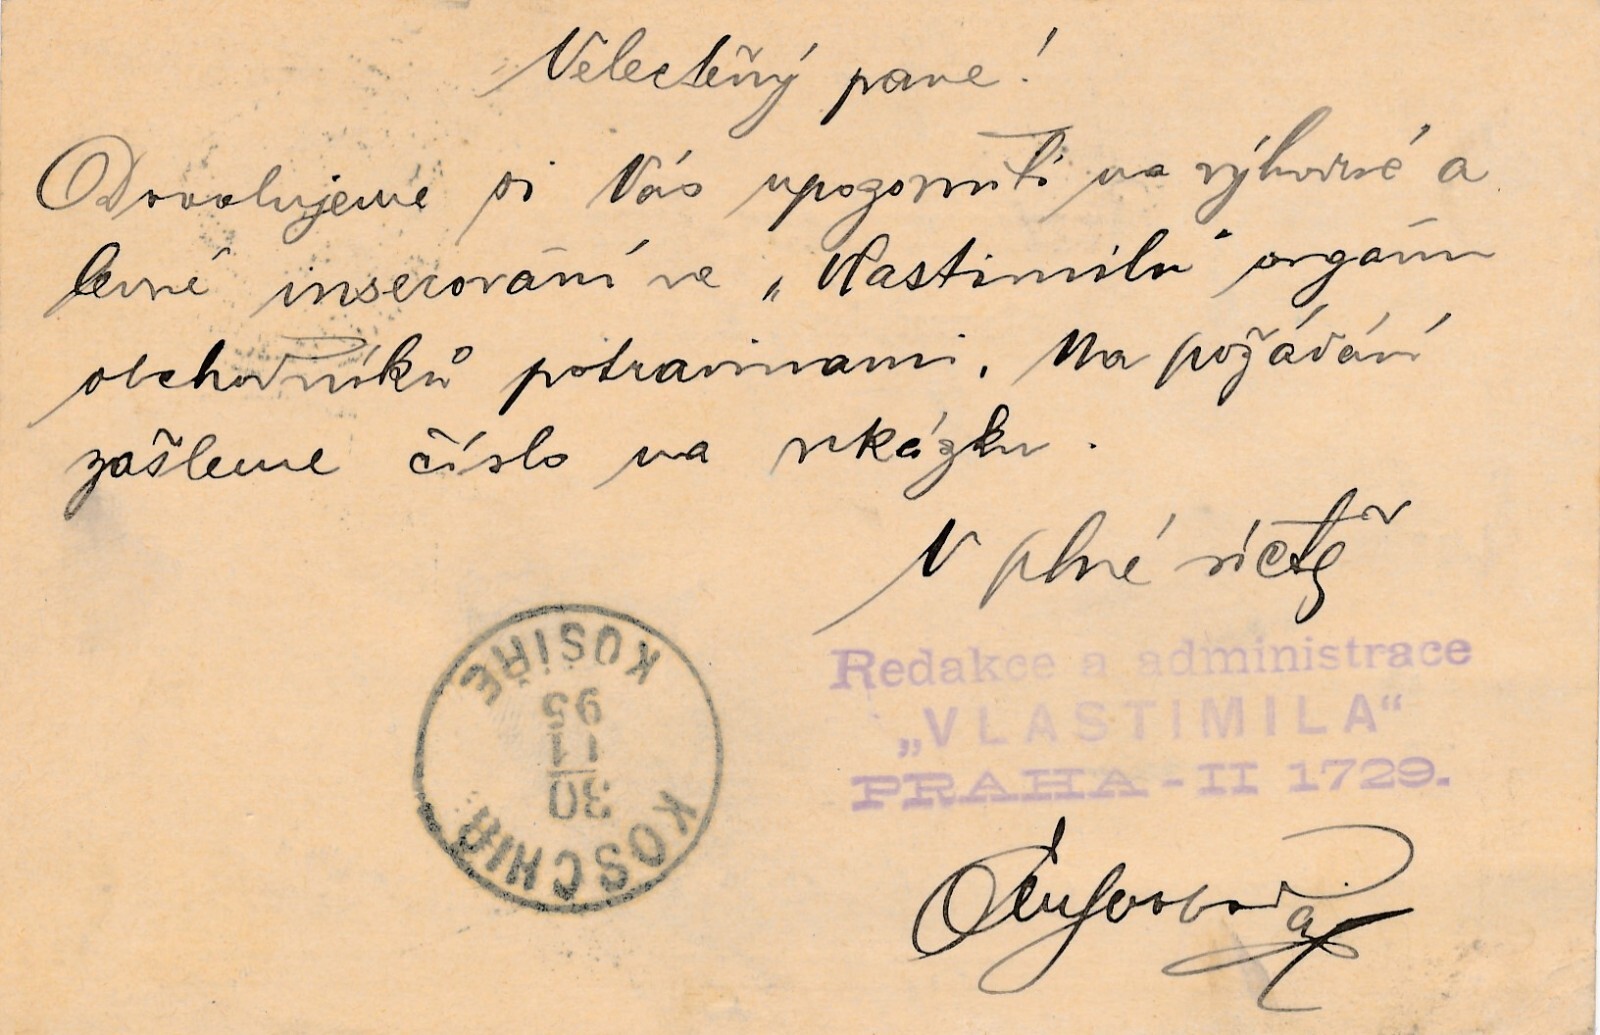 Velectěný pane!
Dovolujeme si Vás upozorniti na výhodné a
levné inserování ve „Vlastimilu" orgánu
obchodníků potravinami. Na požádání
zašleme číslo na ukázku.
V plné úctě
Redakce a administrace
„VLASTIMILA“
PRAHA - II 1729.
KOŠÍŘE
95
11
30
KOSCHIŘ